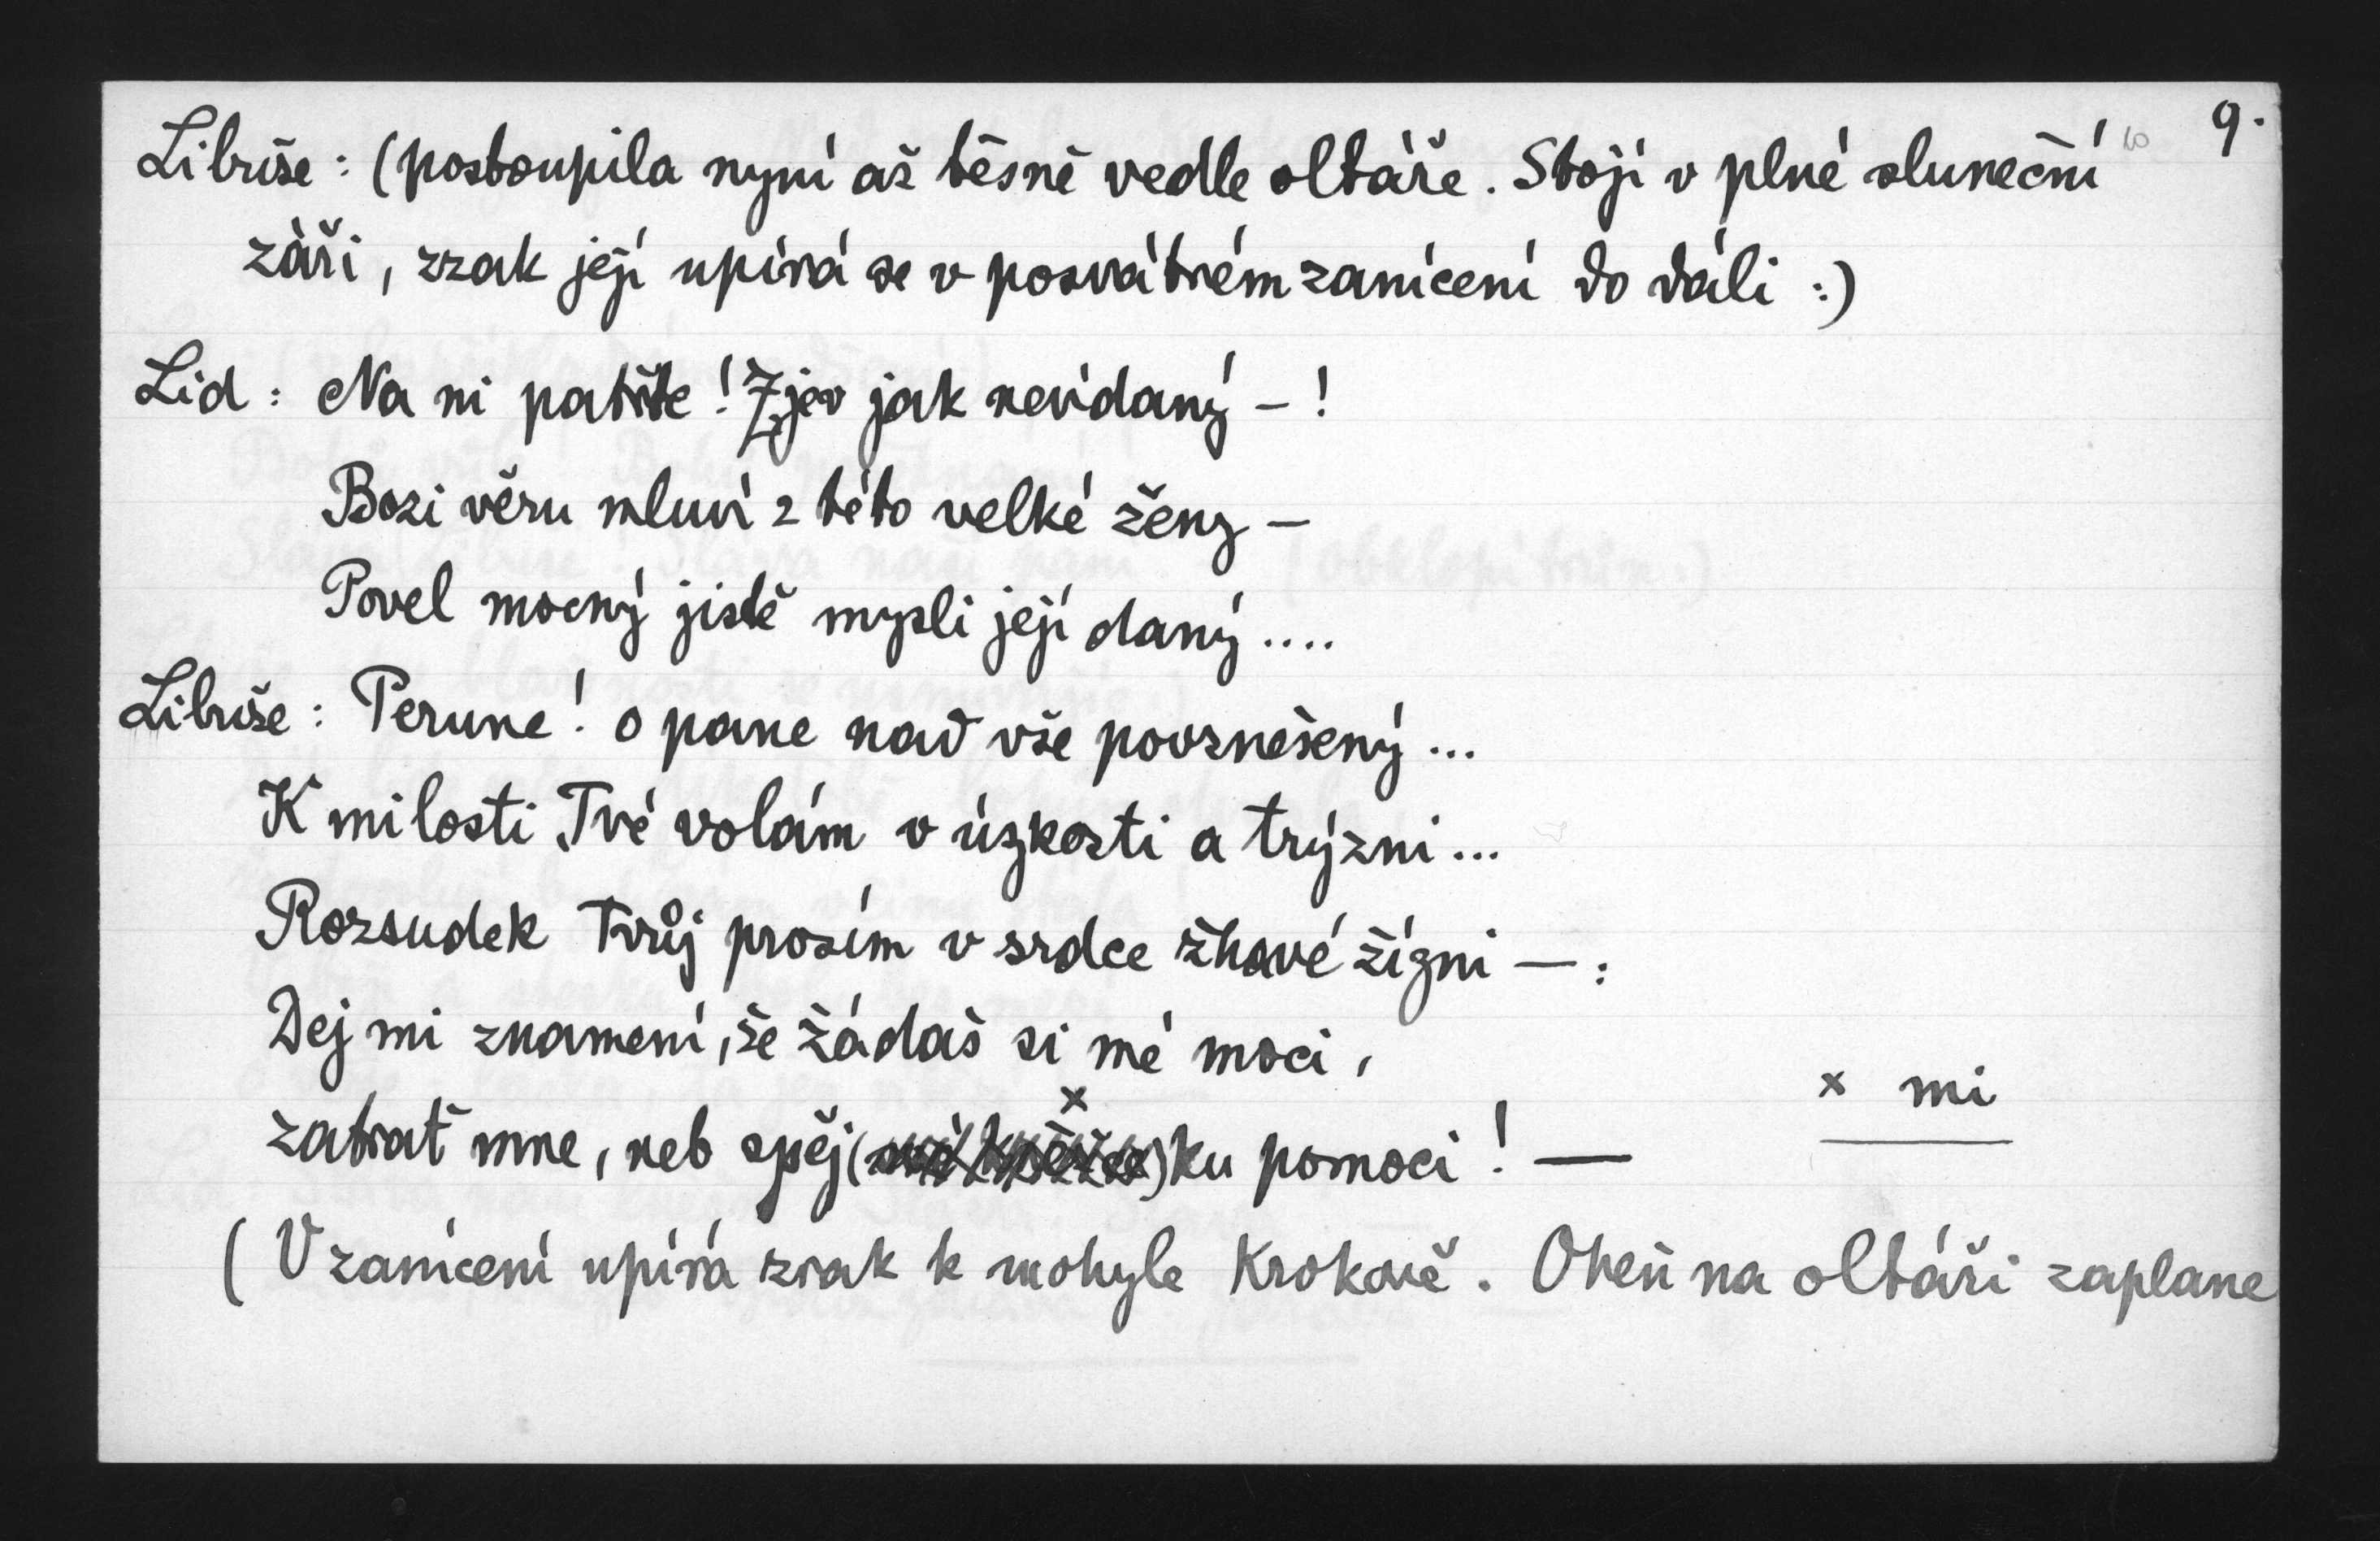 9.
Libuše: (postoupila nyní až těsně vedle oltáře. Stojí v plné sluneční
záři, zrak její upírá se v posvátném zanícení do dáli :)
Lid: Na ni patřte! Zjev jak nevídaný – !
Bozi věru mluví z této velké ženy –
Povel mocný jistě mysli její daný....
Libuše: Perune! o pane nad vše povznešený...
K milosti Tvé volám v úzkosti a trýzni...
Rozsudek Tvůj prosím v srdce žhavé žízni — :
Dej mi znamení, že žádáš si mé moci,
x mi
zatrať mne, neb spěj ( x ) ku pomoci! —
( V zanícení upírá zrak k mohyle Krokově. Oheň na oltáři zaplane